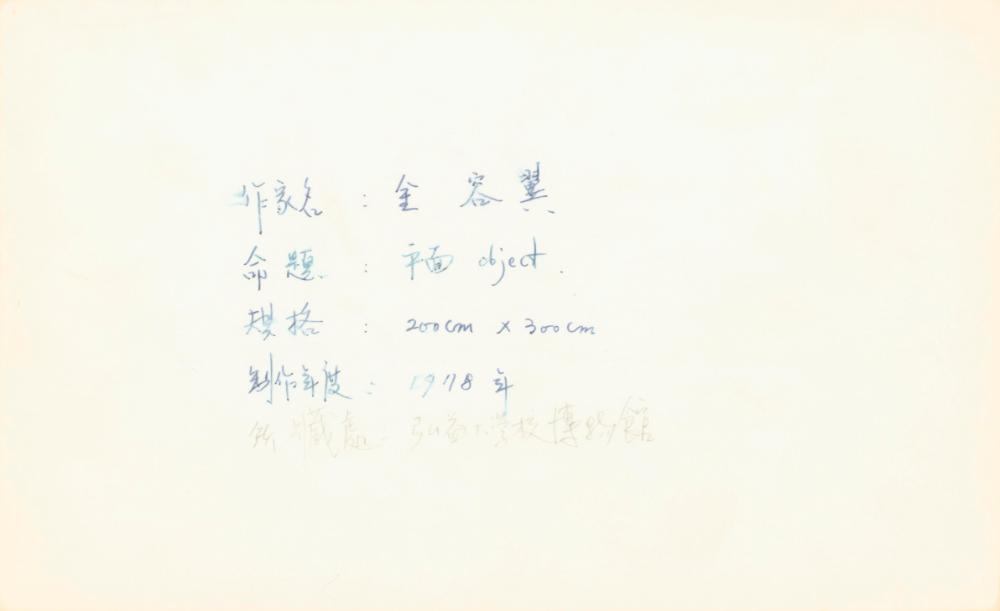 作家名 : 金 容翼
命題 : 平面 object.
規格 : 200cm x 300cm
制作年度 : 1978 年
所臟處 : 弘益大学校博物館